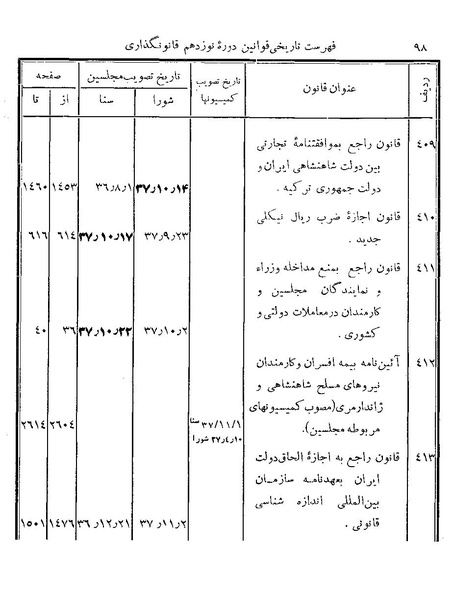 ۹۸ فهرست تاریخی قوانین دورهٔ نوزدهم قانونگذاری
ردیف عنوان قانون تاریخ تصویب کمیسیونها تاریخ تصویب مجلسین صفحه
شورا سنا از تا
۴۰۹ قانون راجع بموافقتنامهٔ تجارتی
بین دولت شاهنشاهی ایران و
دولت جمهوری ترکیه . ۳۷٫۱۰٫۱۴ ۳۶٫۸٫۱ ۱٤٥۳ ۱٤٦۰
٤۱۰ قانون اجازهٔ ضرب ریال نیکلی
جدید . ۳۷٫۹٫۲۳ ۳۷٫۱۰٫۱۷ ٦۱٤ ٦۱٦
٤۱۱ قانون راجع بمنع مداخله وزراء
و نمایندگان مجلسین و
کارمندان در معاملات دولتی و
کشوری . ۳۷٫۱۰٫۲ ۳۷٫۱۰٫۲۲ ۳٦ ٤۰
٤۱۲ آئین‌نامه بیمه افسران و کارمندان
نیروهای مسلح شاهنشاهی و
ژاندارمری (مصوب کمیسیونهای
مربوطه مجلسین). ۳۷/۱۱/۱ سنا ۲٦۰٤ ۲٦۱٤
شورا
٤۱۳ قانون راجع به اجازهٔ الحاق دولت
ایران بعهدنامه سازمان
بین‌المللی اندازه شناسی
قانونی . ۳۷٫۱۱٫۲ ۳٦٫۱۲٫۲۱ ۱٤۷٦ ۱٥۰۱